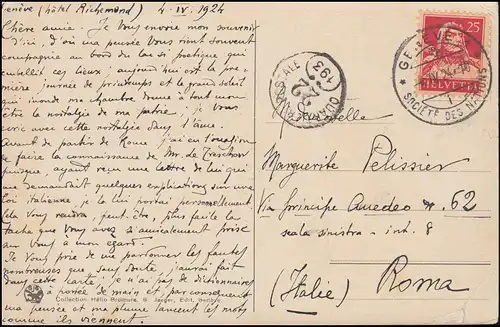 Genève (hôtel Richemond) 4-IV-1924
Chère amie. Je Vous envoie mon souvenir
d'ici, d'où ma pensée Vous vient souvent
compagnie au bord du lac si poétique qui
embellit ces lieux; aujourd'hui est la première
journée de printemps et le grand soleil qui
inonde ma chambre donne à tout mon
être la nostalgie de ma patrie, je Vous
écris avec cette nostalgie dans l'âme.
Avant de partir de Rome j'ai eu l'occasion
de faire la connaissance de Mr. de
puisque, ayant reçu une lettre de lui qui
me demandait quelques explications sur une
loi italienne, je la lui portai personnellement
Cela Vous rendra, peut être, plus facile la
tâche que Vous avez si amicalement prise
sur Vous à mon égard.
Je Vous prie de me pardonner les fautes
nombreuses que sans doute j'aurai fait
dans cette carte, je n'ai pas de dictionnaires
à portée de main et, par conséquent
ma pensée et ma plume lancent les mots
comme ils viennent.
Collection Hélio Brunnure, S. Jaeger, Edit, Genève.
GENÈVE
SOCIÉTÉ DES NATIONS
25
HELVETIA
Marguerite Pelissier
Via Principe Amedeo n. 62
scala sinistra - int. 8
(Italie) Roma